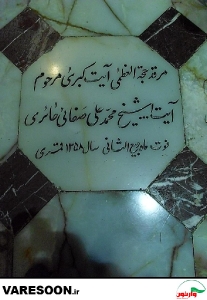 مرقد حجة العظمی آیت کبری مرحوم
آیت الله شیخ محمد علی صفائی حائری
فوت ماه ربیع الثانی سال ۱۳۵۸ قمری
VARESOON.ir
وارثون